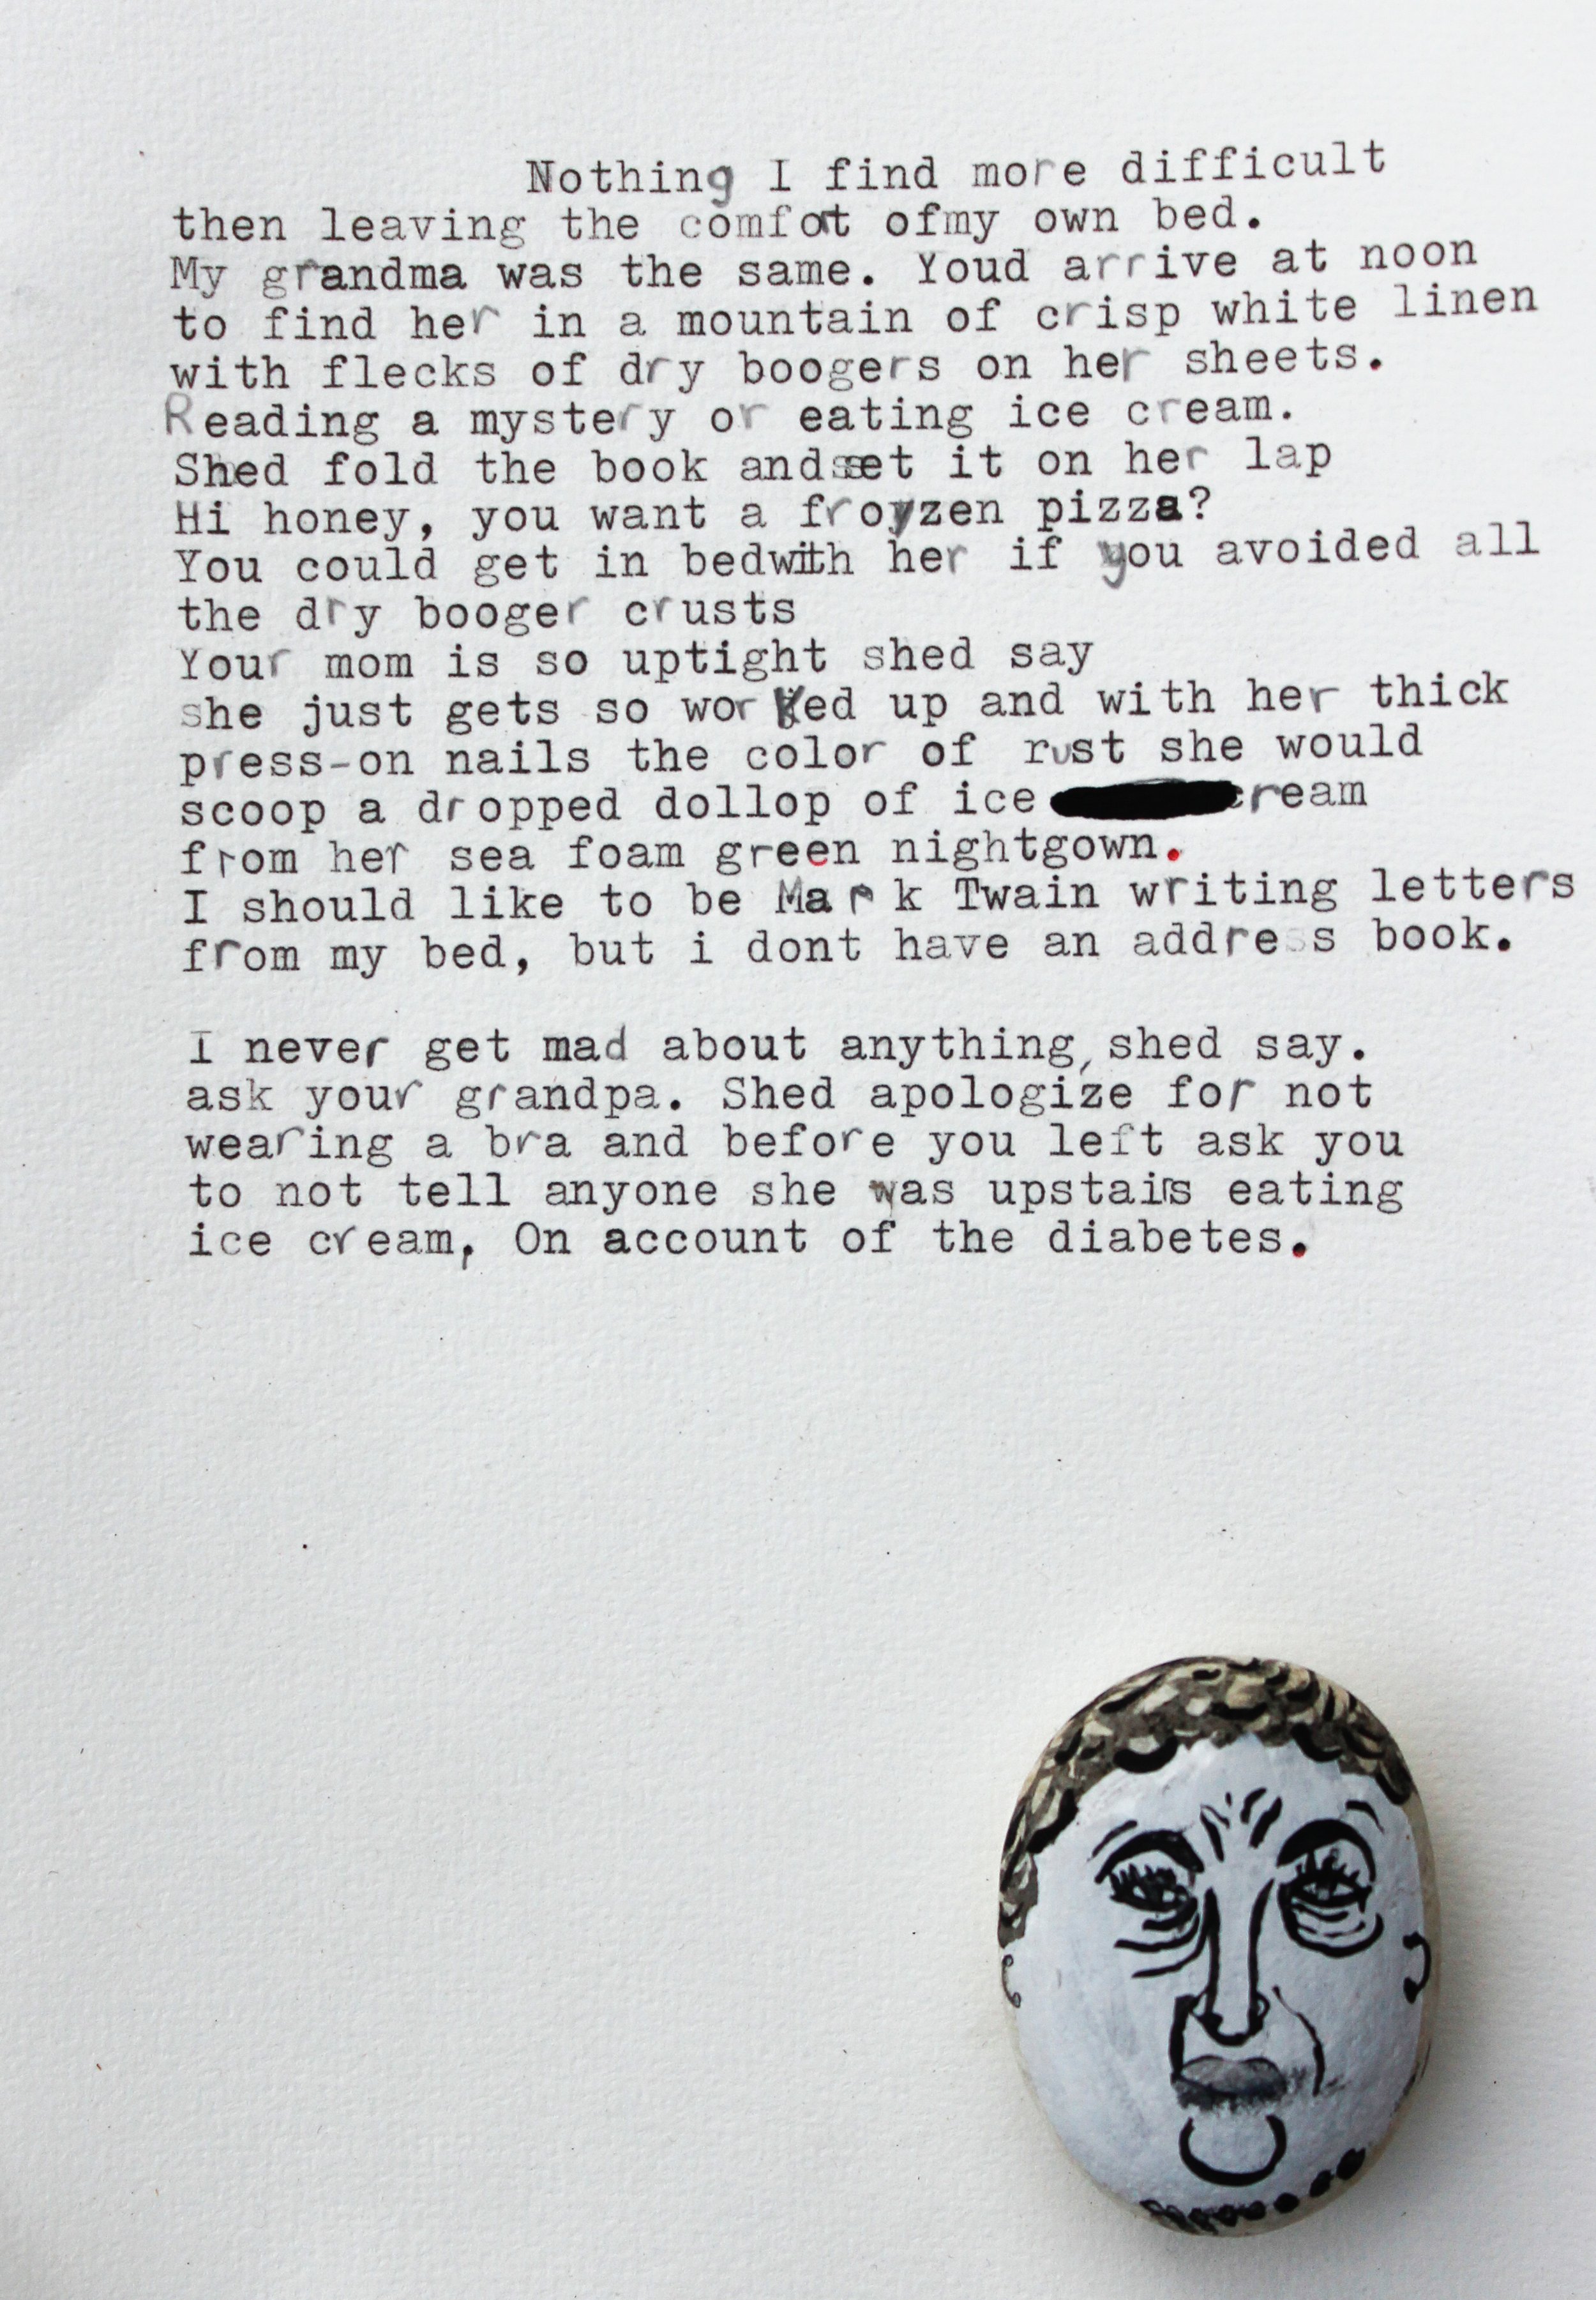 Nothing I find more difficult
then leaving the comfot ofmy own bed.
My grandma was the same. Youd arrive at noon
to find her in a mountain of crisp white linen
with flecks of dry boogers on her sheets.
Reading a mystery or eating ice cream.
Shed fold the book andsset it on her lap
Hi honey, you want a froyzen pizza?
You could get in bedwith her if you avoided all
the dry booger crusts
Your mom is so uptight shed say
she just gets so worked up and with her thick
press-on nails the color of rust she would
scoop a dropped dollop of ice cream
from her sea foam green nightgown.
I should like to be Mark Twain writing letters
from my bed, but i dont have an address book.
I never get mad about anything, shed say.
ask your grandpa. Shed apologize for not
wearing a bra and before you left ask you
to not tell anyone she was upstairs eating
ice cream, On account of the diabetes.